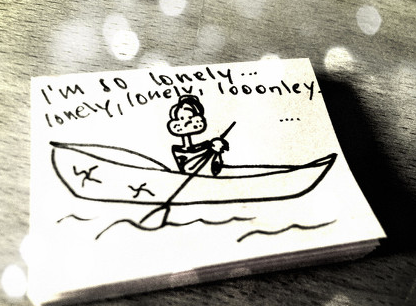 I'm so lonely...
lonely, lonely, looonley.
....